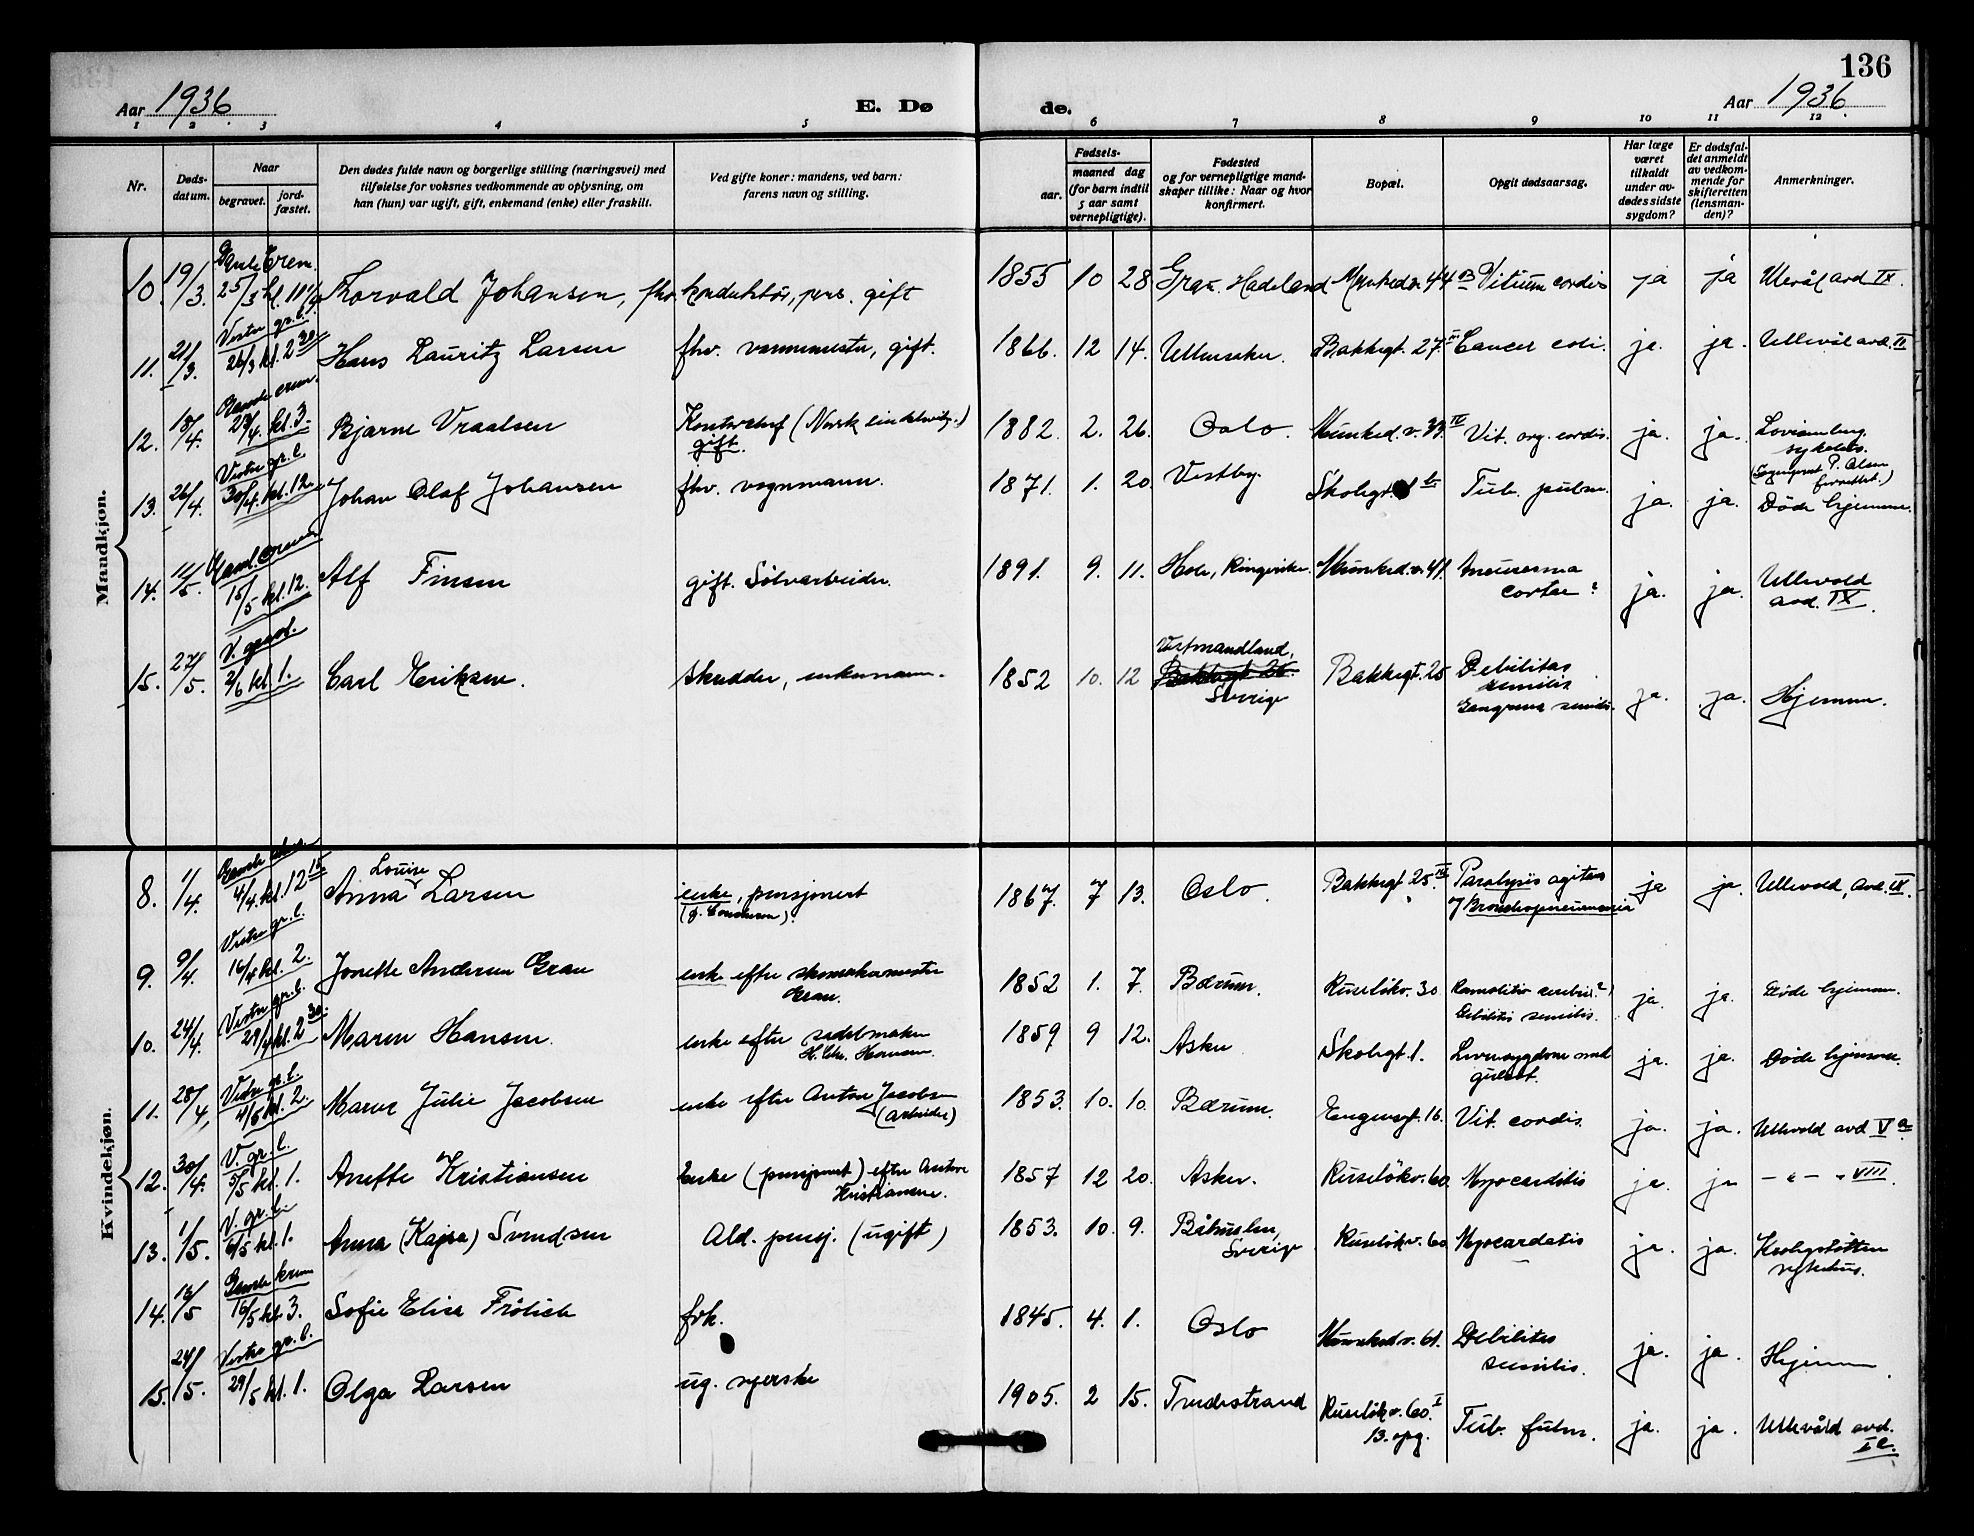 136
Aar 1936
E. Dø de.
Aar 1936
1 2 3 4 5 6 7 8 9 10 11 12
Nr.
Døds-
datum.
Naar
begravet.
jord-
fæstet.
Den dødes fulde navn og borgerlige stilling (næringsvei) med
tilføielse for voksnes vedkommende av oplysning, om
han (hun) var ugift, gift, enkemand (enke) eller fraskilt.
Ved gifte koner: mandens, ved barn:
farens navn og stilling.
Fødsels-
aar.
maaned dag
(for barn indtil
5 aar samt
vernepligtige).
Fødested
og for vernepligtige mand-
skaper tillike: Naar og hvor
konfirmert.
Bopæl.
Opgit dødsaarsag.
Har læge
været
tilkaldt
under av-
dødes sidste
sygdom?
Er dødsfal-
det anmeldt
av vedkom-
mende for
skifteretten
(lensman-
den)?
Anmerkninger.
Mandkjøn.
10. 19/3. Gamle Crem. 25/3 kl. 11 Torvald Johansen, fhv. konduktör, pens. gift 1855 10 28 Gran. Hadeland Munkedv. 44 Vitium cordis ja ja Ulevål avd IX.
11. 21/3. Vestre gr.l. 26/3 kl. 2 30 Hans Lauritz Larsen fhv. varmemester, gift. 1866. 12 14. Ullensaker. Bakkegt. 27 II Cancer coli. ja. ja. Ullevål avd. II
12. 18/4. Gamle crem. 23/4. kl. 3. Bjarne Vraalsen Kontorchef (Norsk
gift. 1882. 2. 26. Oslo. Munked.v. 33. IV Vit. org. cordis. ja. ja. Lovisenberg
sykehus.
13. 26/4. Vestre gr.l. 30/4. kl. 12. Johan Olaf Johansen fhv. vognmann. 1871. 1. 20. Vestby. Skolegt. Tub. pulm. ja. ja. (Sogneprest P. Olsen
forrettet.)
Døde hjemme.
14. 11/5. Gaml. crem. 15/5 kl. 12. Alf Finsen gift. Sølvarbeider. 1891. 9. 11. Hole, Ringerike. Munked.v. 41. Aneurisma
aortae? ja. ja. Ullevold
avd. IX.
15. 27/5. V. gravl. 2/6 kl. 1. Carl Eriksen. skredder, enkemann. 1852 10. 12 Vestmandland,
Bakkegt 25.
Sverige Bakkegt. 25 Debilitas
senilis
Gangrena senilis. ja. ja. Hjemme.
Kvindekjøn.
8. 1/4. Gamle krem. 4/4. kl. 12 15 Louise
Anna Larsen enke, pensjonert
1867. 7 13. Oslo. Bakkegt. 25. III Paralysis agitans
Bronchopneumonia ja ja. Ullevold, avd. IX.
9. 9/4. Vestre gr.l. 16/4 kl. 2. Jonette Andersen Grau enke efter skomakermester
Grau. 1852 1. 7. Bærum. Ruseløkv. 30 Ramolitio cerebri?
Debilitis senilis. ja. ja. Døde hjemme.
10. 24/4. Vestre gr.l. 29/4 kl. 2 30. Maren Hansen. enke efter sadelmaker
H. Chr. Hansen. 1859 9 12. Asker Skolegt 1. Leversygdom med
gulsot. ja. ja. Døde hjemme.
11. 28/4, Vestre gr.l. 4/5 kl. 2. Maren Julie Jacobsen enke efter Anton Jacobsen
(arbeider) 1853. 10. 10. Bærum. Engensgt. 16. Vit. cordis. ja. ja. Ullevold avd V a
12. 30/4. V. gr.l. 5/5 kl. 1. Anette Kristiansen Enke (pensjonert) efter Anton
Kristiansen. 1857 12 20. Asker. Ruseløkv. 60. Myocarditis ja. ja - " - " VIII.
13. 1/5. V. gr.l. 6/5 kl. 1. Anna (Kajsa) Svendsen Ald. pensj. (ugift) 1853. 10. 9. Båhuslen,
Sverige Ruseløkv. 60 Myocardatis ja. ja. Krohgstøtten
sykehus.
14. 12/5 Gamle krem 16/5 kl 3. Sofie Elise Frölich frk. 1845. 4. 1. Oslo Munked v. 61. Debilitas
senilis. ja. ja. Hjemme
15. 24/5. Vestre gr.l. 29/5 kl. 1. Olga Larsen ug. syerske 1905. 2 15. Tvedestrand Ruseløkv. 60. I
13. opg. Tub. pulm. ja. ja. Ullevåld avd.